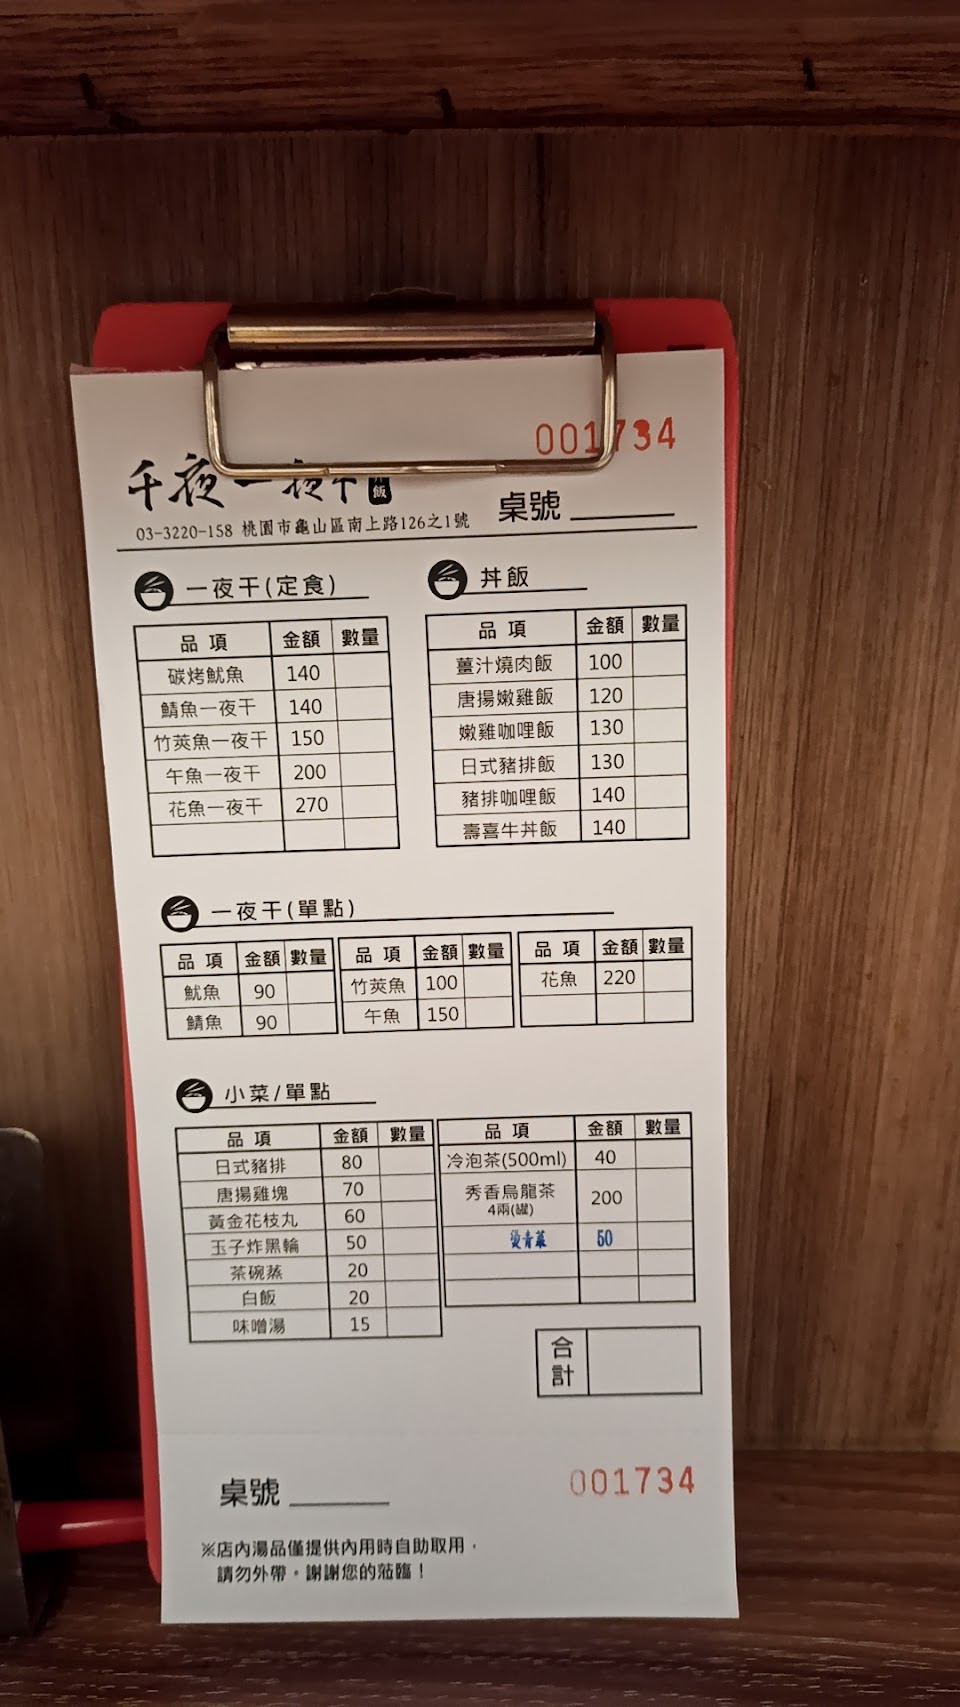 001734
千夜一夜干
飯
桌號
03-3220-158 桃園市龜山區南上路126之1號
一夜干(定食)
品項 金額 數量
碳烤魷魚 140
鯖魚一夜干 140
竹莢魚一夜干 150
午魚一夜干 200
花魚一夜干 270
丼飯
品項 金額 數量
薑汁燒肉飯 100
唐揚嫩雞飯 120
嫩雞咖哩飯 130
日式豬排飯 130
豬排咖哩飯 140
壽喜牛丼飯 140
一夜干(單點)
品項 金額 數量
魷魚 90
鯖魚 90
品項 金額 數量
竹莢魚 100
午魚 150
品項 金額 數量
花魚 220
小菜/單點
品項 金額 數量
日式豬排 80
唐揚雞塊 70
黃金花枝丸 60
玉子炸黑輪 50
茶碗蒸 20
白飯 20
味噌湯 15
品項 金額 數量
冷泡茶(500ml) 40
秀香烏龍茶 200
4兩(罐)
燙青菜 50
合計
桌號
001734
※店內湯品僅提供內用時自助取用，
請勿外帶。謝謝您的蒞臨！